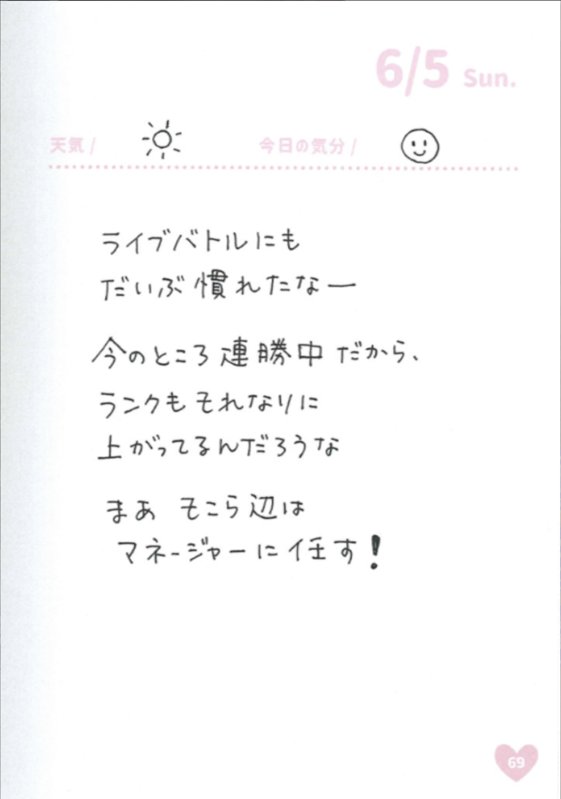 6/5 Sun.
天気/ 今日の気分/
ライブバトルにも
だいぶ慣れたなー
今のところ連勝中だから、
ランクもそれなりに
上がってるんだろうな
まあ そこら辺は
マネージャーに任す!
69